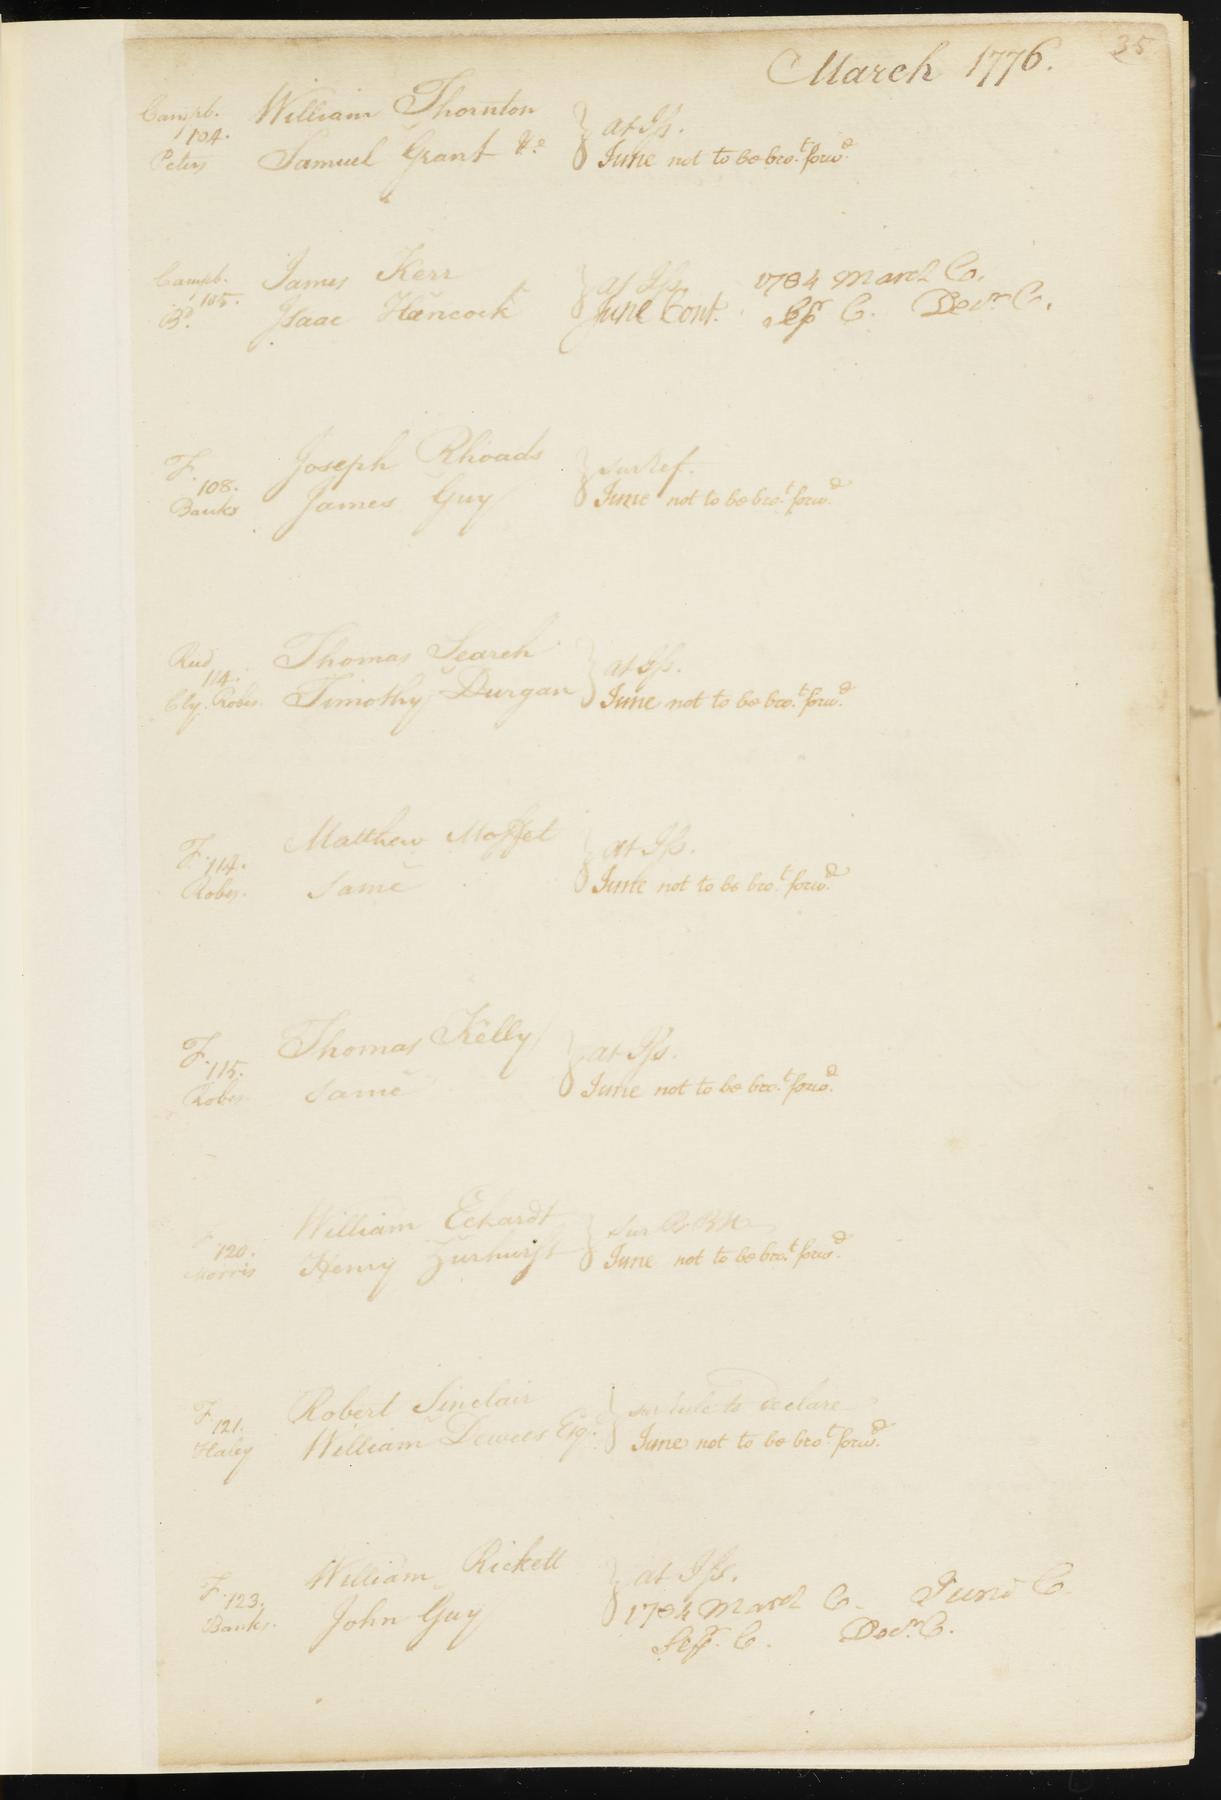 35
March 1776.
Campb. William Thornton } at Iss.
104.
Peters Samuel Grant &c } June not to be bro.t forw.d
Campb. James Kerr } at Iss. 1784 March C.
105.
Bd. Isaac Hancock } June Cont. Sepr C. Decr C.
F. Joseph Rhoads } sur ref.
108.
Banks James Guy } June not to be bro.t forw.d
Thomas Search } at Iss.
114.
Timothy Durgan } June not to be bro.t forw.d
F. Matthew Moffet } at Iss.
114.
Robes. Same } June not to be bro.t forw.d
F. Thomas Kelly } at Iss.
115.
Robes. Same } June not to be bro.t forw.d
William Eckardt } sur
120.
Morris Henry Zurhurst } June not to be bro.t forw.d
F. Robert Sinclair } sur rule to declare
121.
Haley William Dewees Esq. } June not to be bro.t forw.d
F. William Rickett } at Iss.
123.
Banks. John Guy } 1784 March C. June C.
Sepr. C. Decr C.